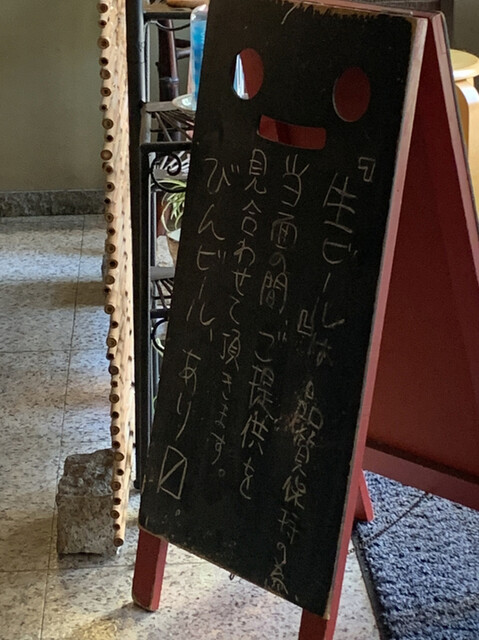 『生ビール』は 品質保持の為、
当面の間、ご提供を
見合わせて頂きます。
びんビール、あり〼。